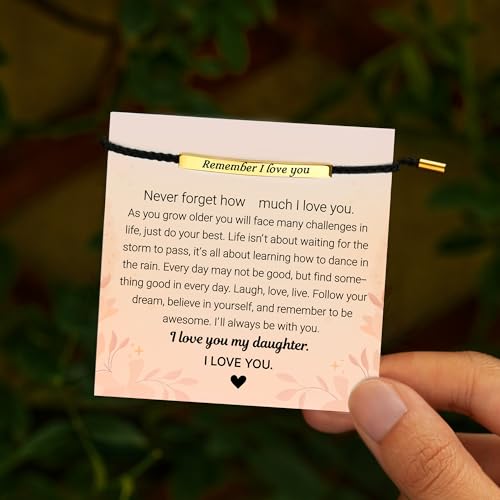 Remember I love you
Never forget how much I love you.
As you grow older you will face many challenges in
life, just do your best. Life isn't about waiting for the
storm to pass, it's all about learning how to dance in
the rain. Every day may not be good, but find some–
thing good in every day. Laugh, love, live. Follow your
dream, believe in yourself, and remember to be
awesome. I'll always be with you.
I love you my daughter.
I LOVE YOU.